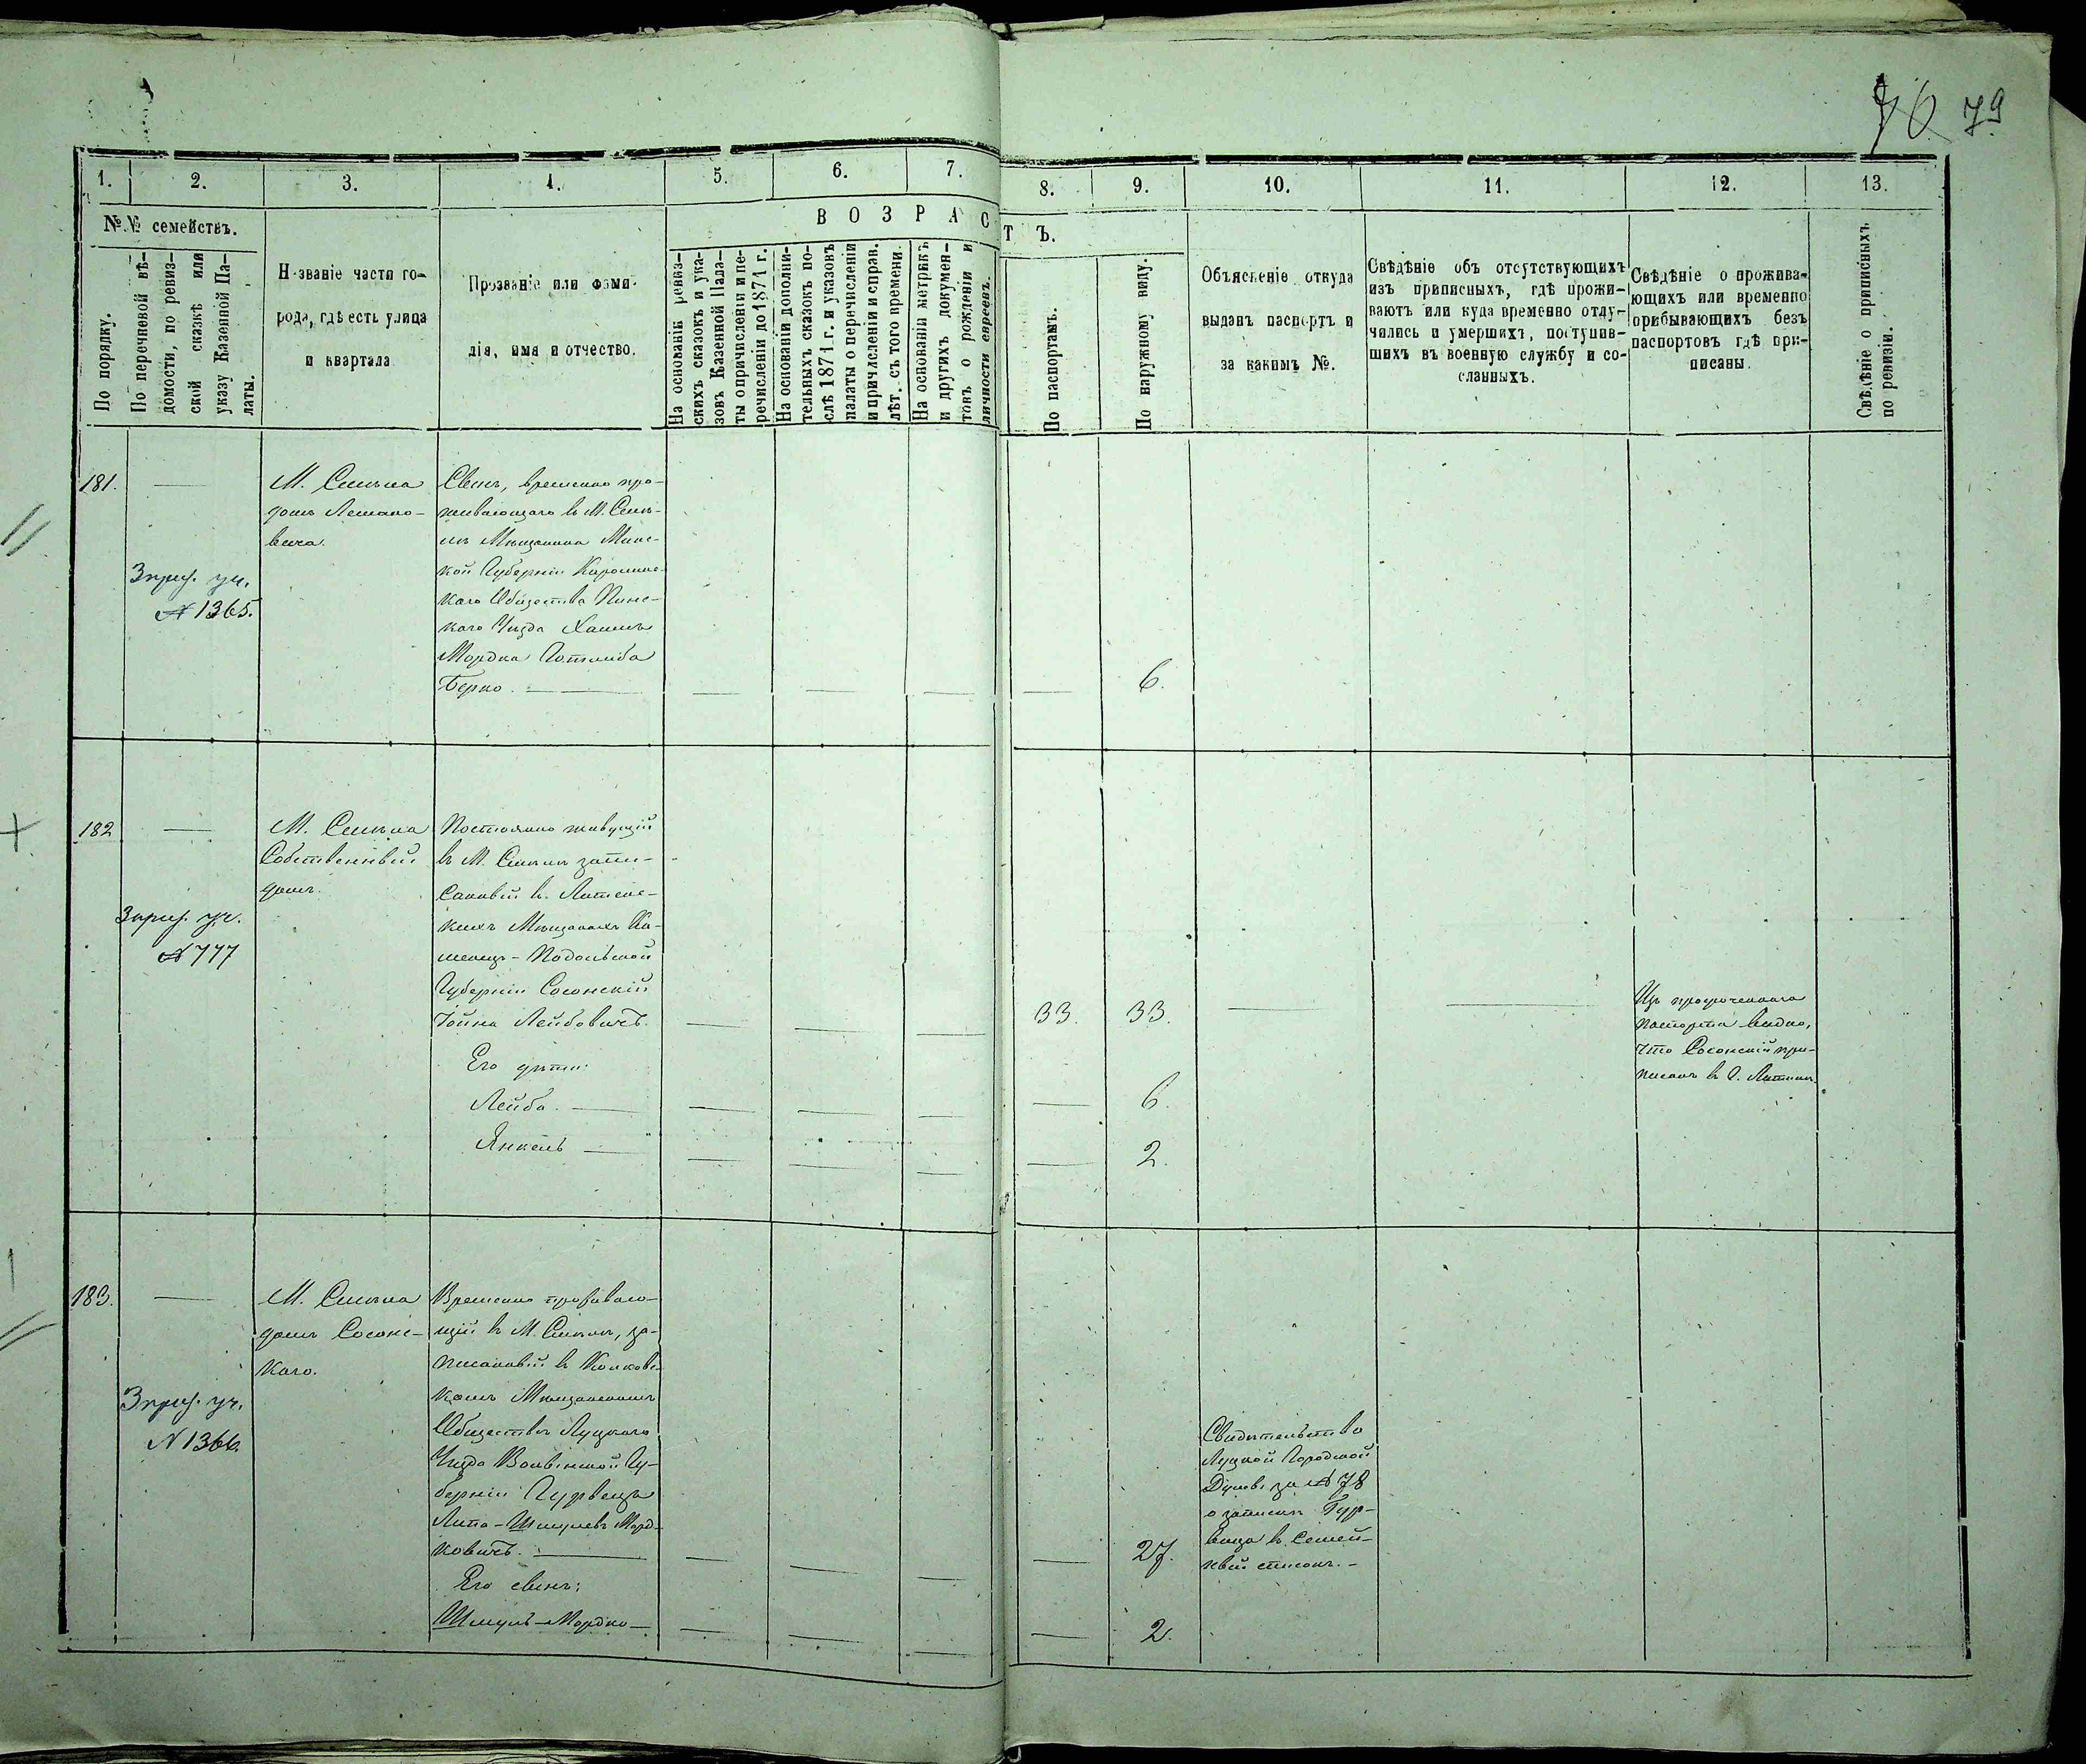 79
1.
2.
3.
4.
5.
6.
7.
8.
9.
10.
11.
12.
13.
№№ семействъ.
По порядку.
По перечневой вѣ-
домости, по ревиз-
ской сказкѣ или
указу Казенной Па-
латы.
Названіе части го-
рода, гдѣ есть улица
и квартала
Прозваніе или фами-
лія, имя и отчество.
ВОЗРАС
ТЪ.
На основаніи ревиз-
скихъ сказокъ и ука-
зовъ Казенной Пала-
ты о причисленіи и пе-
речисленіи до 1871 г.
На основаніи дополни-
тельныхъ сказокъ по-
слѣ 1871 г. и указовъ
палаты о перечисленіи
и причисленіи и справ.
лѣт. съ того времени.
На основаніи метрикъ
и другихъ докумен-
товъ о рожденіи и
личности евреевъ.
По паспортамъ.
По наружному виду.
Объясненіе откуда
выданъ паспортъ и
за какимъ №.
Свѣдѣніе объ отсутствующихъ
изъ приписныхъ, гдѣ прожи-
ваютъ или куда временно отлу-
чились и умершихъ, поступив-
шихъ въ военную службу и со-
сланныхъ.
Свѣдѣніе о прожива-
ющихъ или временно
прибывающихъ безъ
паспортовъ гдѣ при-
писаны.
Свѣдѣніе о приписныхъ
по ревизіи.
181.
—
3 приз. уч.
№ 1365.
М. Смѣла
домъ
Сынъ, временно про-
живающаго въ М. Смѣ-
лѣ Мѣщанина Минс-
кой Губерніи
каго Общества Пинс-
каго Уѣзда Хаимъ
Мордка Готлиба
Берко.
6.
182
—
3 приз. уч.
№ 777
М. Смѣла
Собственный
домъ.
Постоянно живущій
въ М. Смѣлѣ запи-
санный въ Литинс-
кихъ Мѣщанахъ Ка-
менецъ-Подольской
Губерніи Сосонскій
Іойна Лейбовичъ.
33.
33.
Изъ просроченнаго
паспорта видно,
что Сосонскій при-
писанъ въ Г. Литинѣ.
Его дѣти:
Лейба.
6.
Янкель
2.
183.
—
3 приз. уч.
№ 1366.
М. Смѣла
домъ Сосонс-
каго.
Временно проживаю-
щій въ М. Смѣлѣ, за-
писанный въ Колковс-
комъ Мѣщанскомъ
Обществѣ Луцкаго
Уѣзда Волынской Гу-
берніи Гурвицъ
Липа-Шмулевъ Морд-
ковичъ.
27.
Свидѣтельство
Луцкой Городской
Думы за № 78
о запискѣ Гур-
вица въ семей-
ный списокъ.
Его сынъ:
Шмуль-Мордко
2.